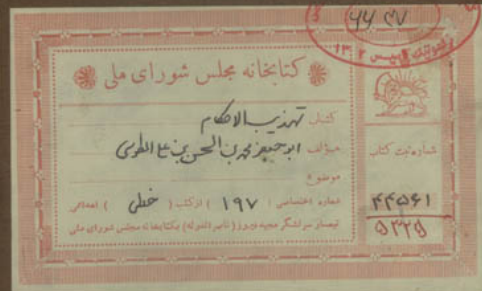 ۶۶۳۷
کتابخانه مجلس شورای ملی
کتاب تهذیب الاحکام
مؤلف ابوجعفر محمد بن الحسن بن علی الطوسی
موضوع
شماره اختصاصی ( ۱۹۷ ) از کتب ( خطی ) اهدائی
تیمسار سرلشکر مجید فیروز (ناصرالدوله) بکتابخانه مجلس شورای ملی
شماره ثبت کتاب
۴۴۵۶۱
۵۳۲۵